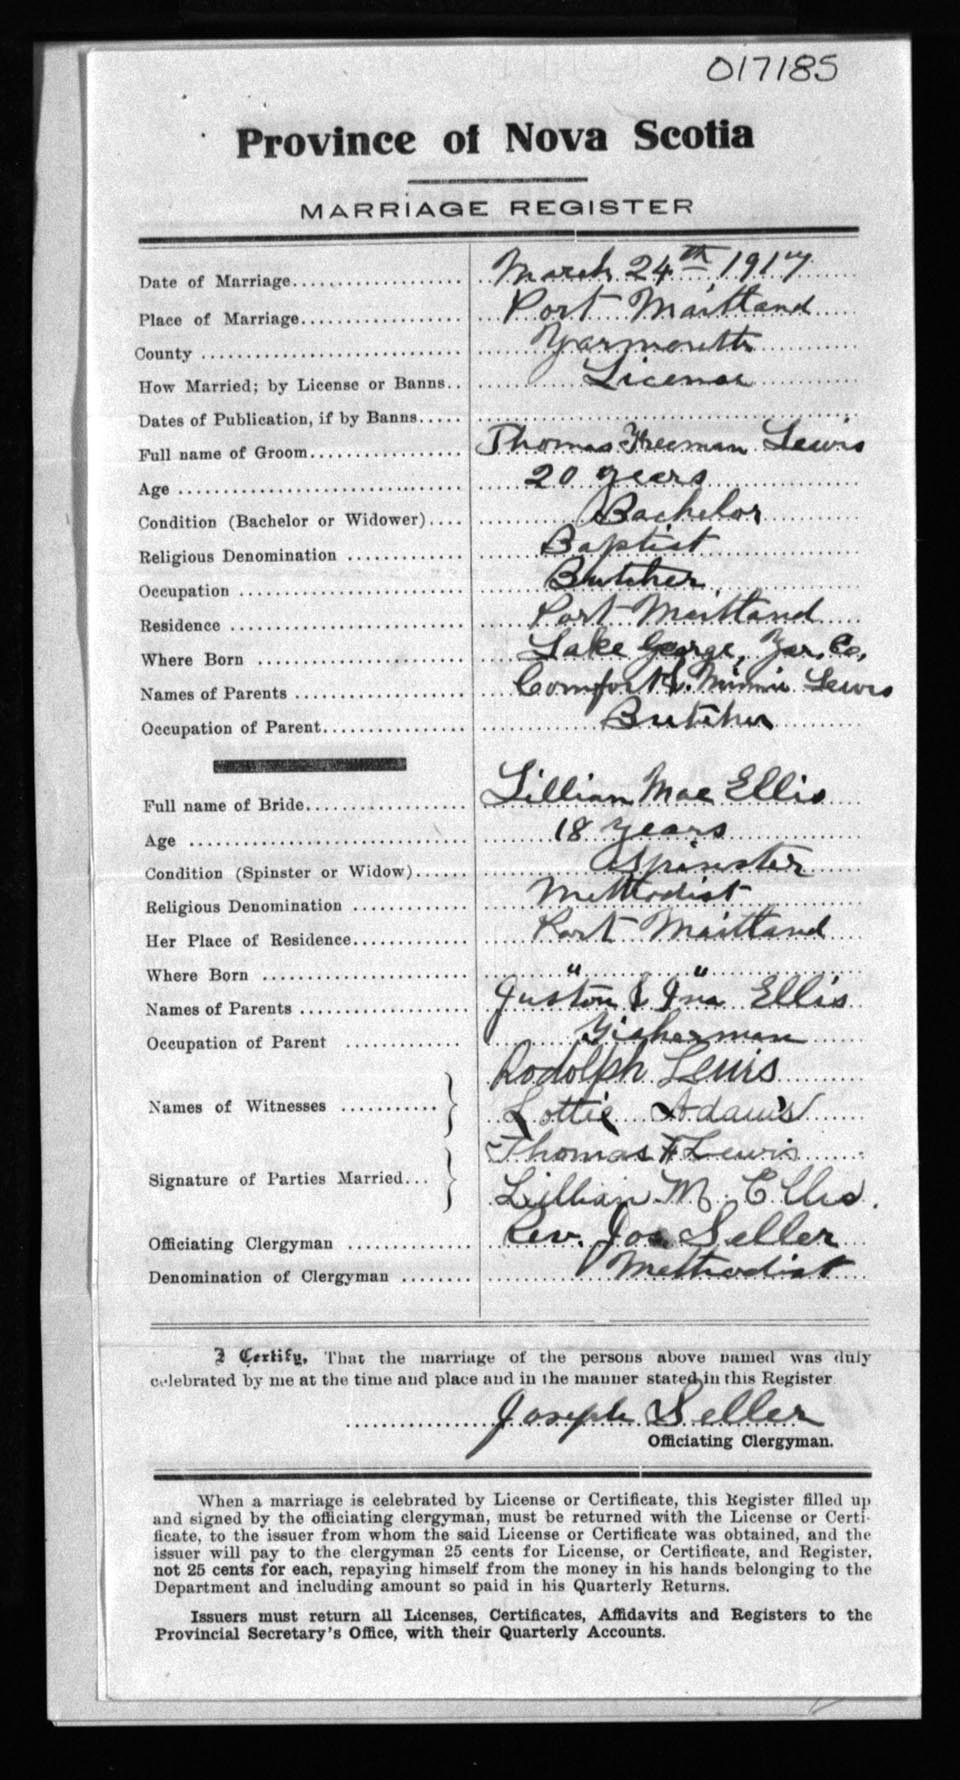 017185
Province of Nova Scotia
MARRIAGE REGISTER
Date of Marriage.................... March 24th 1917
Place of Marriage................... Port Maitland
County ............................. Yarmouth
How Married; by License or Banns.. License
Dates of Publication, if by Banns.....
Full name of Groom.................. Thomas Freeman Lewis
Age ................................ 20 years
Condition (Bachelor or Widower).... Bachelor
Religious Denomination ............. Baptist
Occupation ......................... Butcher
Residence .......................... Port Maitland
Where Born ......................... Lake George, Yar. Co.
Names of Parents ................... Comfort & Minnie Lewis
Occupation of Parent................ Butcher
Full name of Bride.................. Lillian Mae Ellis
Age ................................ 18 years
Condition (Spinster or Widow)...... Spinster
Religious Denomination ............. Methodist
Her Place of Residence.............. Port Maitland
Where Born ......................... " "
Names of Parents ................... Juston & Ina Ellis
Occupation of Parent ............... Fisherman
Names of Witnesses ........... } Rodolph Lewis
Lottie Adams
Signature of Parties Married... } Thomas F Lewis
Lillian M. Ellis.
Officiating Clergyman .............. Rev. Jos. Seller
Denomination of Clergyman ........ Methodist
I Certify, That the marriage of the persons above named was duly
celebrated by me at the time and place and in the manner stated in this Register
Joseph Seller
Officiating Clergyman.
When a marriage is celebrated by License or Certificate, this Register filled up
and signed by the officiating clergyman, must be returned with the License or Certi-
ficate, to the issuer from whom the said License or Certificate was obtained, and the
issuer will pay to the clergyman 25 cents for License, or Certificate, and Register,
not 25 cents for each, repaying himself from the money in his hands belonging to the
Department and including amount so paid in his Quarterly Returns.
Issuers must return all Licenses, Certificates, Affidavits and Registers to the
Provincial Secretary's Office, with their Quarterly Accounts.